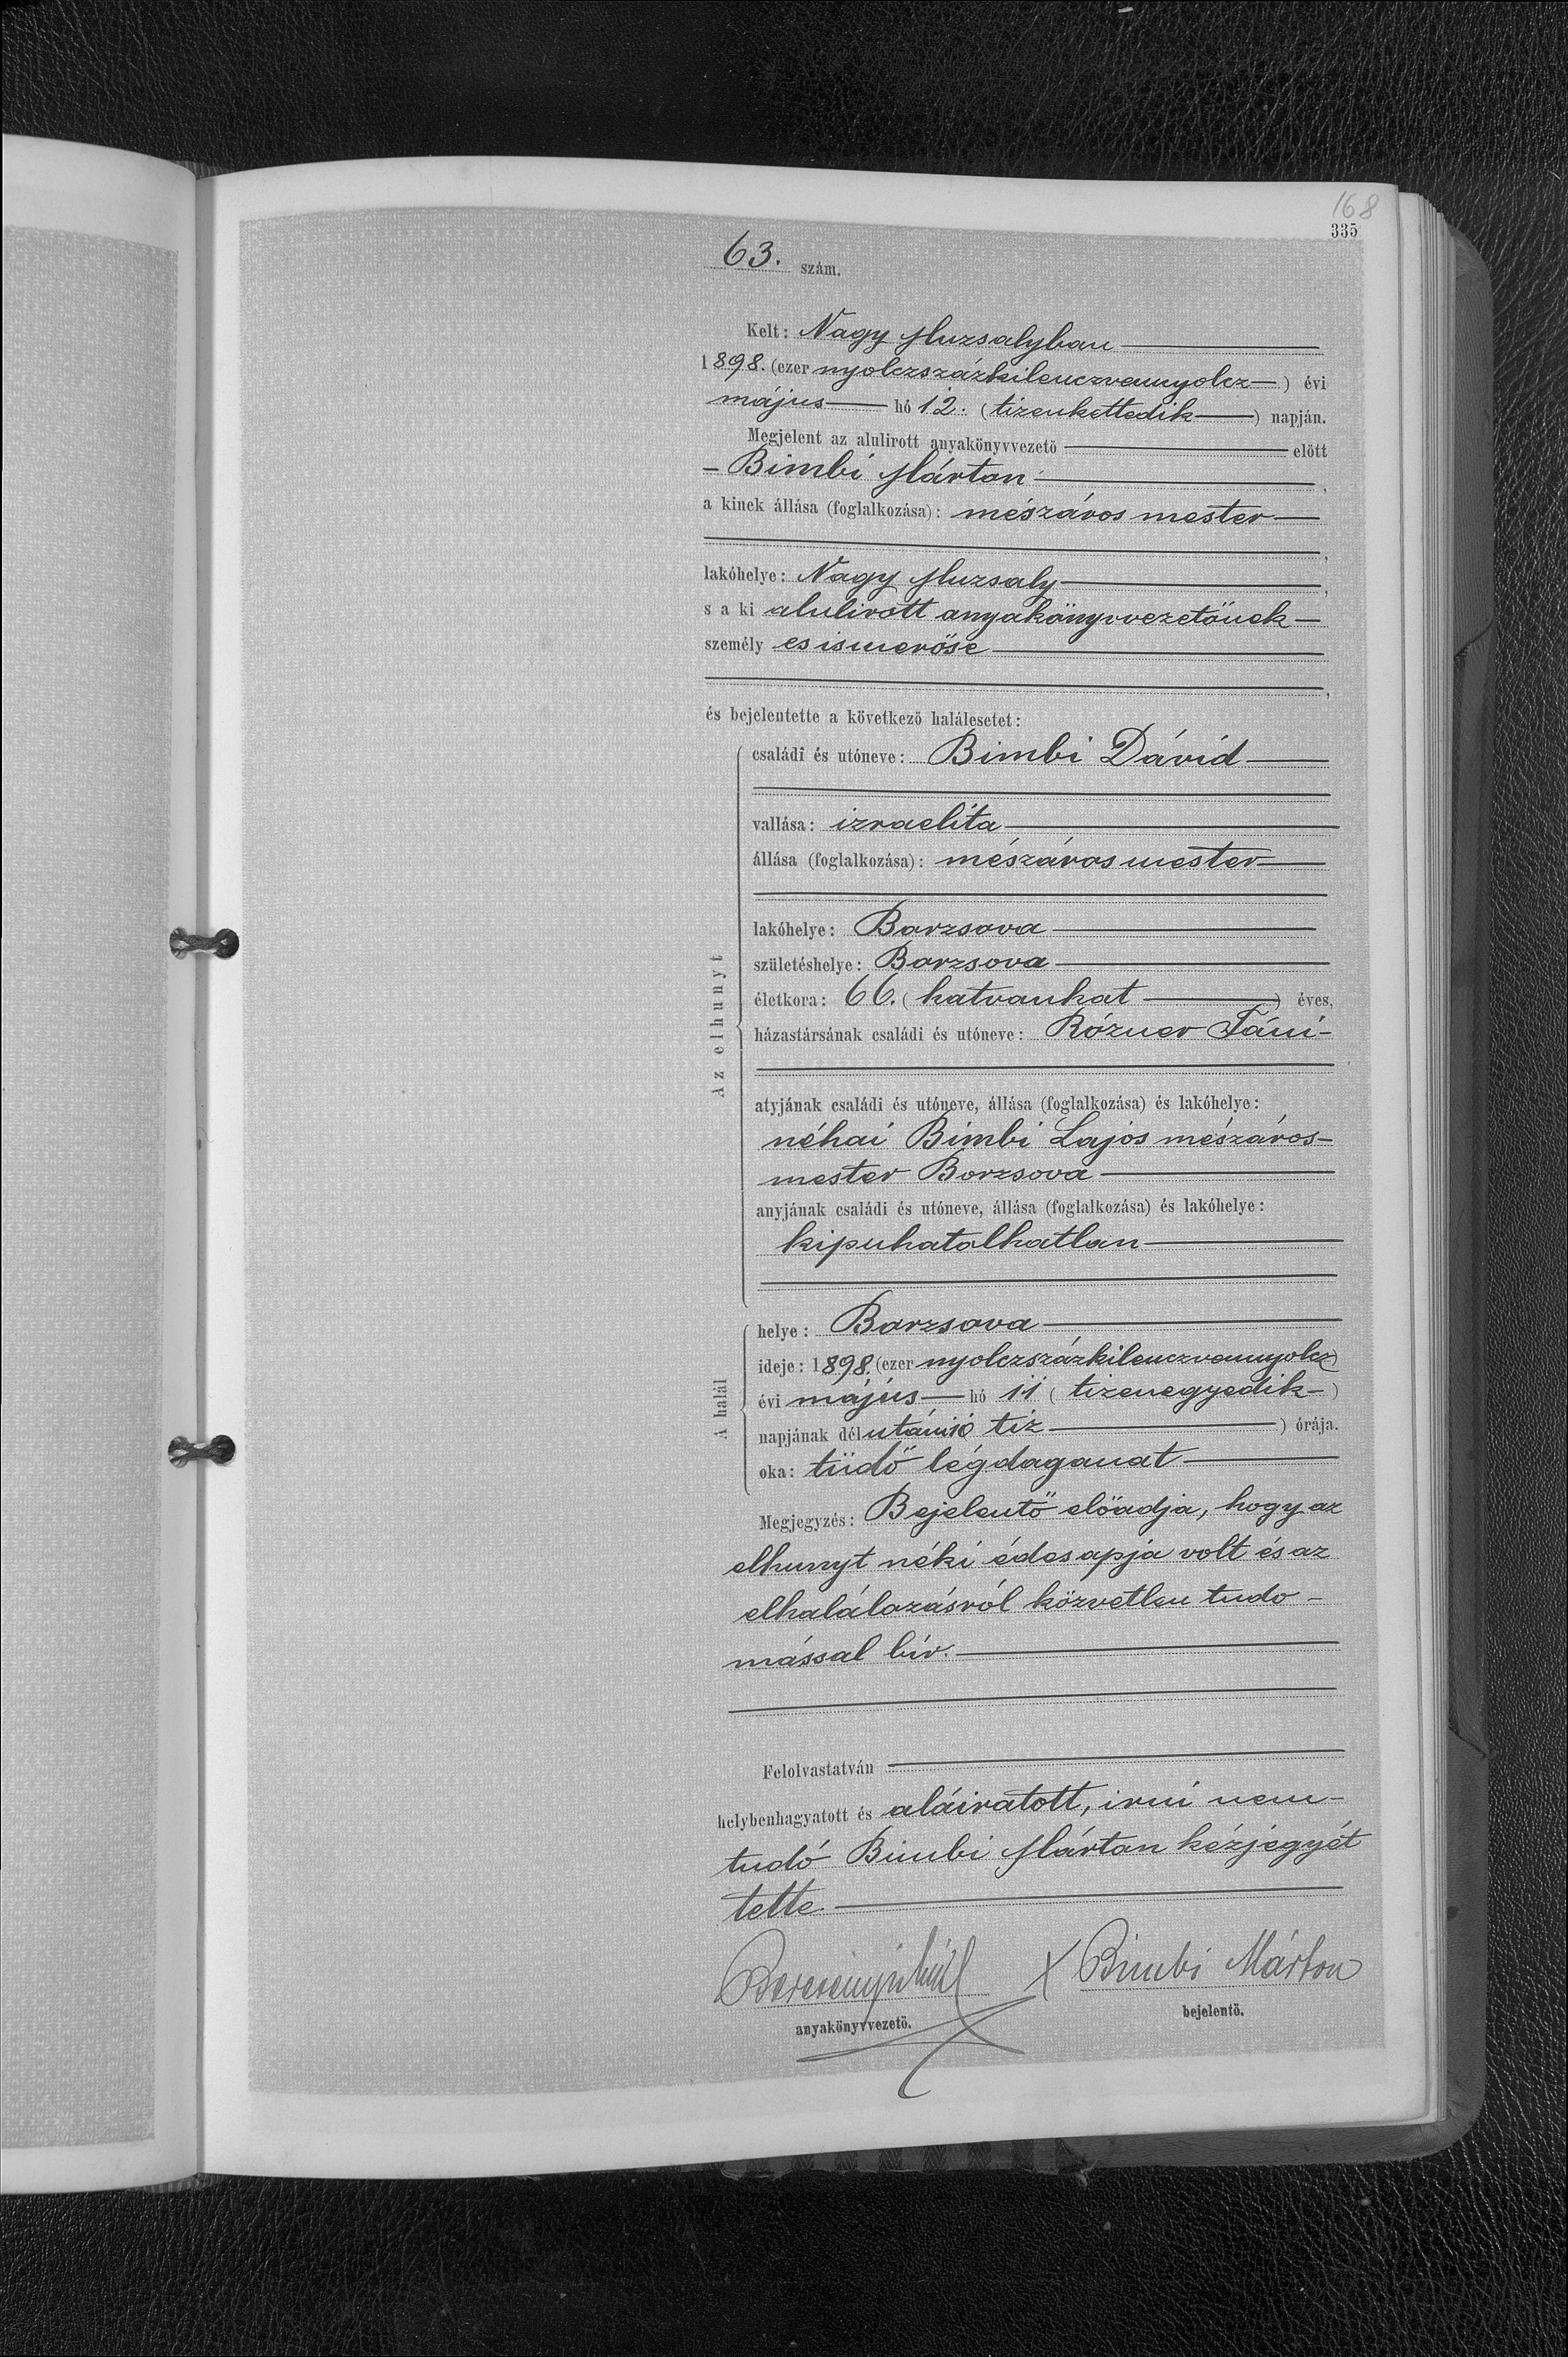 168
335
63. szám.
Kelt: Nagy Muzsalyban
1898. (ezer nyolczszázkilenczvennyolcz) évi
május hó 12. (tizenkettedik) napján.
Megjelent az alulirott anyakönyvvezető előtt
Bimbi Márton
a kinek állása (foglalkozása): mészáros mester
lakóhelye: Nagy Muzsaly
s a ki alulirott anyakönyvvezetőnek
személyes ismerőse
és bejelentette a következő halálesetet:
Az elhunyt
családi és utóneve: Bimbi Dávid
vallása: izraelita
állása (foglalkozása): mészáros mester
lakóhelye: Borzsova
születéshelye: Borzsova
életkora: 66. (hatvanhat) éves,
házastársának családi és utóneve: Rózner Fáni
atyjának családi és utóneve, állása (foglalkozása) és lakóhelye:
néhai Bimbi Lajos mészáros-
mester Borzsova
anyjának családi és utóneve, állása (foglalkozása) és lakóhelye:
kipuhatolhatlan
A halál
helye: Borzsova
ideje: 1898. (ezer nyolczszázkilenczvennyolcz)
évi május hó 11 (tizenegyedik)
napjának délutáni 10 tiz) órája.
oka: tüdő légdaganat
Megjegyzés: Bejelentő előadja, hogy az
elhunyt néki édes apja volt és az
elhalálozásról közvetlen tudo-
mással bír.
Felolvastatván
helybenhagyatott és aláiratott, irni nem
tudó Bimbi Márton kézjegyét
tette
X Bimbi Márton
anyakönyvvezető. bejelentő.